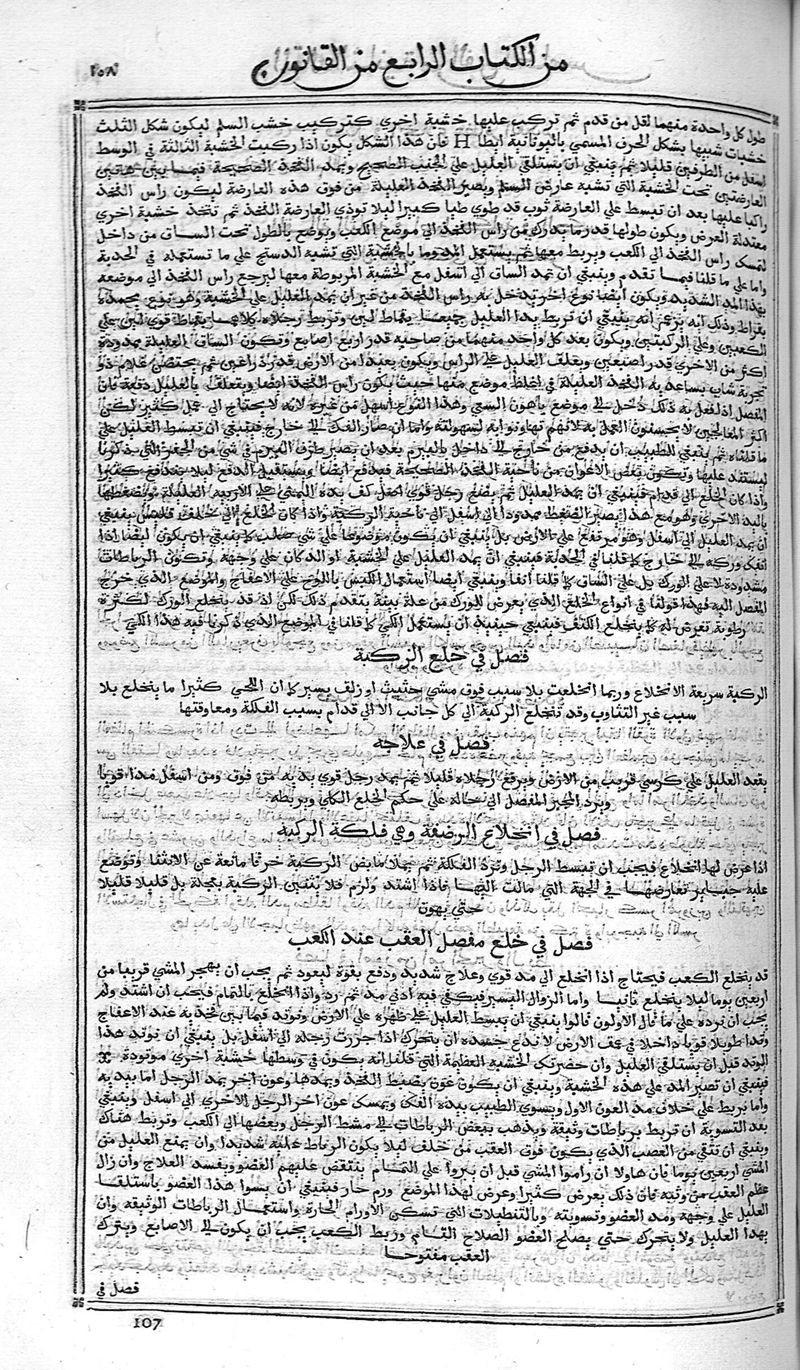 من الكتاب الرابع من القانون
٢٥٨
طول كل واحدة منهما لقل من قدم ثم تركب عليها خشبة اخري كتركيب خشب السلم ليكون شكل الثلث
خشبات شبيها بشكل الحرف المسمي باليونانية ايطا H فان هذا الشكل يكون اذا ركبت الخشبة الثالثة في الوسط
اسفل من الطرفين قليلا ثم ينبغي ان يستلقي العليل علي الجنب الصحيح ويمد الفخذ الصحيحة فيما بين هاتين
العارضتين تحت الخشبة التي تشبه عارض السلم ويصير الفخذ العليلة من فوق هذه العارضة ليكون راس الفخذ
راكبا عليها بعد ان تبسط علي العارضة ثوب قد طوي طيا كبيرا ليلا توذي العارضة الفخذ ثم تتخذ خشبة اخري
معتدلة العرض ويكون طولها قدر ما يدرك من راس الفخذ الي موضع الكعب ويوضع بالطول تحت الساق من داخل
لتمسك راس الفخذ الي الكعب ويربط معها ثم يستعمل المد وما بالخشبة التي تشبه الدستج علي ما تستعمله في الحدبة
واما علي ما قلنا فيما تقدم وينبغي ان تمد الساق الي اسفل مع الخشبة المربوطة معها ليرجع راس الفخذ الي موضعه
بهذا المد الشديد ويكون ايضا نوع اخر يدخل به راس الفخذ من غير ان يمد العليل علي الخشبة وهو نوع يحمده
بقراط وذلك انه يزعم انه ينبغي ان تربط يدا العليل جميعا بقماط لين وتربط رجلاه كلاهما بقماط قوي لين علي
الكعبين وعلي الركبتين ويكون بعد كل واحد منهما من صاحبه قدر اربع اصابع وتكون الساق العليلة ممدودة
اكثر من الاخري قدر اصبعين ويعلق العليل علي الراس ويكون بعيدا من الارض قدر ذراعين ثم يحتضن غلام ذو
تجربة شاب بساعديه الفخذ العليلة في اغلظ موضع منها حيث يكون راس الفخذ ايضا ويتعلق بالعليل دفعة فان
المفصل اذا فعل به ذلك دخل الي موضعه باهون السعي وهذا النوع اسهل من غيره لانه لا يحتاج الي عمل كثير لكن
اكثر المعالجين لا يحسنون العمل به لانهم تهاونوا به لسهولته واما ان صار الفك الي خارج فينبغي ان تبسط العليل علي
ما قلناه ثم ينبغي للطبيب ان يدفع من خارج الي داخل بالبيرم بعد ان يصير طرف البيرم في شي من الحفر التي ذكرنا
ليستقد عليها وتكون بعض الاعوان من ناحية الفخذ الصحيحة فدافع ايضا ويستقبل الدفع ليلا يندفع كثيرا
واذا كان الخلع الي قدام فينبغي ان يمد العليل ثم يضع رجل قوي اصل كف يده اليمني علي الاربية العليلة ويضغطها
باليد الاخري وهو مع هذا يصير الضغط ممدودا الي اسفل الي ناحية الركبة واذا كان الخلع الي خلف فليس ينبغي
ان يمد العليل الي اسفل وهو مرتفع علي الارض بل ينبغي ان يكون موضوعا علي شي صلب كما ينبغي ان يكون ايضا اذا
انفك وركه الي خارج كما قلنا في الحدبة فينبغي ان يمد العليل علي الخشبة او الدكان علي وجهه وتكون الرباطات
مشدودة لا علي الورك بل علي الساق كما قلنا انفا وينبغي ايضا استعمال الكبس باللوح علي الاعفاج والموضع الذي خرج
المفصل اليه فهذا قولنا في انواع الخلع الذي يعرض للورك من علة بينة يتقدم ذلك لكن اذ قد ينخلع الورك لكثرة
رطوبة تعرض له كما ينخلع الكتف فينبغي حينيذ ان يستعمل الكي كما قلنا في الموضع الذي ذكرنا فيه هذا الكي
فصل في خلع الركبة
الركبة سريعة الانخلاع وربما انخلعت بلا سبب فوق مشي حثيث او زلق يسير كما ان اللحي كثيرا ما ينخلع بلا
سبب غير التثاوب وقد تنخلع الركبة الي كل جانب الا الي قدام بسبب الفلكة ومعاوقتها
فصل في علاجه
يقعد العليل علي كرسي قريب من الارض ويرفع رجلاه قليلا ثم يمد رجل قوي بيديه من فوق ومن اسفل مدا قويا
ويرد المجبر المفصل الي حاله علي حكم الخلع الكلي ويربطه
فصل في انخلاع الرضفة وهي فلكة الركبة
اذا عرض لها انخلاع فيجب ان تبسط الرجل وترد الفلكة ثم يملا مابض الركبة خرقا مانعة عن الانثنا وتوضع
عليه جباير تعارضها في الجهة التي مالت اليها فاذا اشتد ولزم فلا يثنين الركبة بعجلة بل قليلا قليلا
حتي يهون
فصل في خلع مفصل العقب عند الكعب
قد ينخلع الكعب فيحتاج اذا انخلع الي مد قوي وعلاج شديد ودفع بقوة ليعود ثم يجب ان يهجر المشي قريبا من
اربعين يوما ليلا ينخلع ثانيا واما الزوال اليسير فيكفي فيه ادني مد ثم رد واذا انخلع بالتمام فيجب ان اشتد ولم
يجب ان نرده علي ما قال الاولون قالوا ينبغي ان يبسط العليل علي ظهره علي الارض وتوتد فيما بين فخذيه عند الاعفاج
وتدا طويلا قويا داخلا في عمق الارض لا يدع جسده ان يتحرك اذا جررت رجله الي اسفل بل ينبغي ان توتد هذا
الوتد قبل ان يستلقي العليل وان حضرتك الخشبة العظيمة التي قلنا انه يكون في وسطها خشبة اخري موتودة
فينبغي ان تصير المد علي هذه الخشبة وينبغي ان يكون عون يضبط الفخذ ويمدها وعون اخر يمد الرجل اما بيديه
واما برباط علي خلاف مد العون الاول ويسوي الطبيب بيده الفك ويمسك عون اخر الرجل الاخري الي اسفل وينبغي
بعد التسوية ان تربط برباطات وثيقة ويذهب ببعض الرباطات الي مشط الرجل وبعضها الي الكعب وتربط هناك
وينبغي ان تتقي من العصب الذي يكون فوق العقب من خلف ليلا يكون الرباط عليه شديدا وان يمنع العليل من
المشي اربعين يوما فان هاولا ان راموا المشي قبل ان يبروا علي التمام ينتقض عليهم العضو ويفسد العلاج وان زال
عظم العقب من وثبة فان ذلك يعرض كثيرا وعرض لهذا الموضع ورم حار فينبغي ان يسوا هذا العضو باستلقا
العليل علي وجهه ومد العضو وتسويته وبالتنطيلات التي تسكن الاورام الحارة واستعمال الرباطات الوثيقة وان
يهدا العليل ولا يتحرك حتي يصلح العضو الصلاح التام وربط الكعب يجب ان يكون الي الاصابع ويترك
العقب مفتوحا
فصل في
107